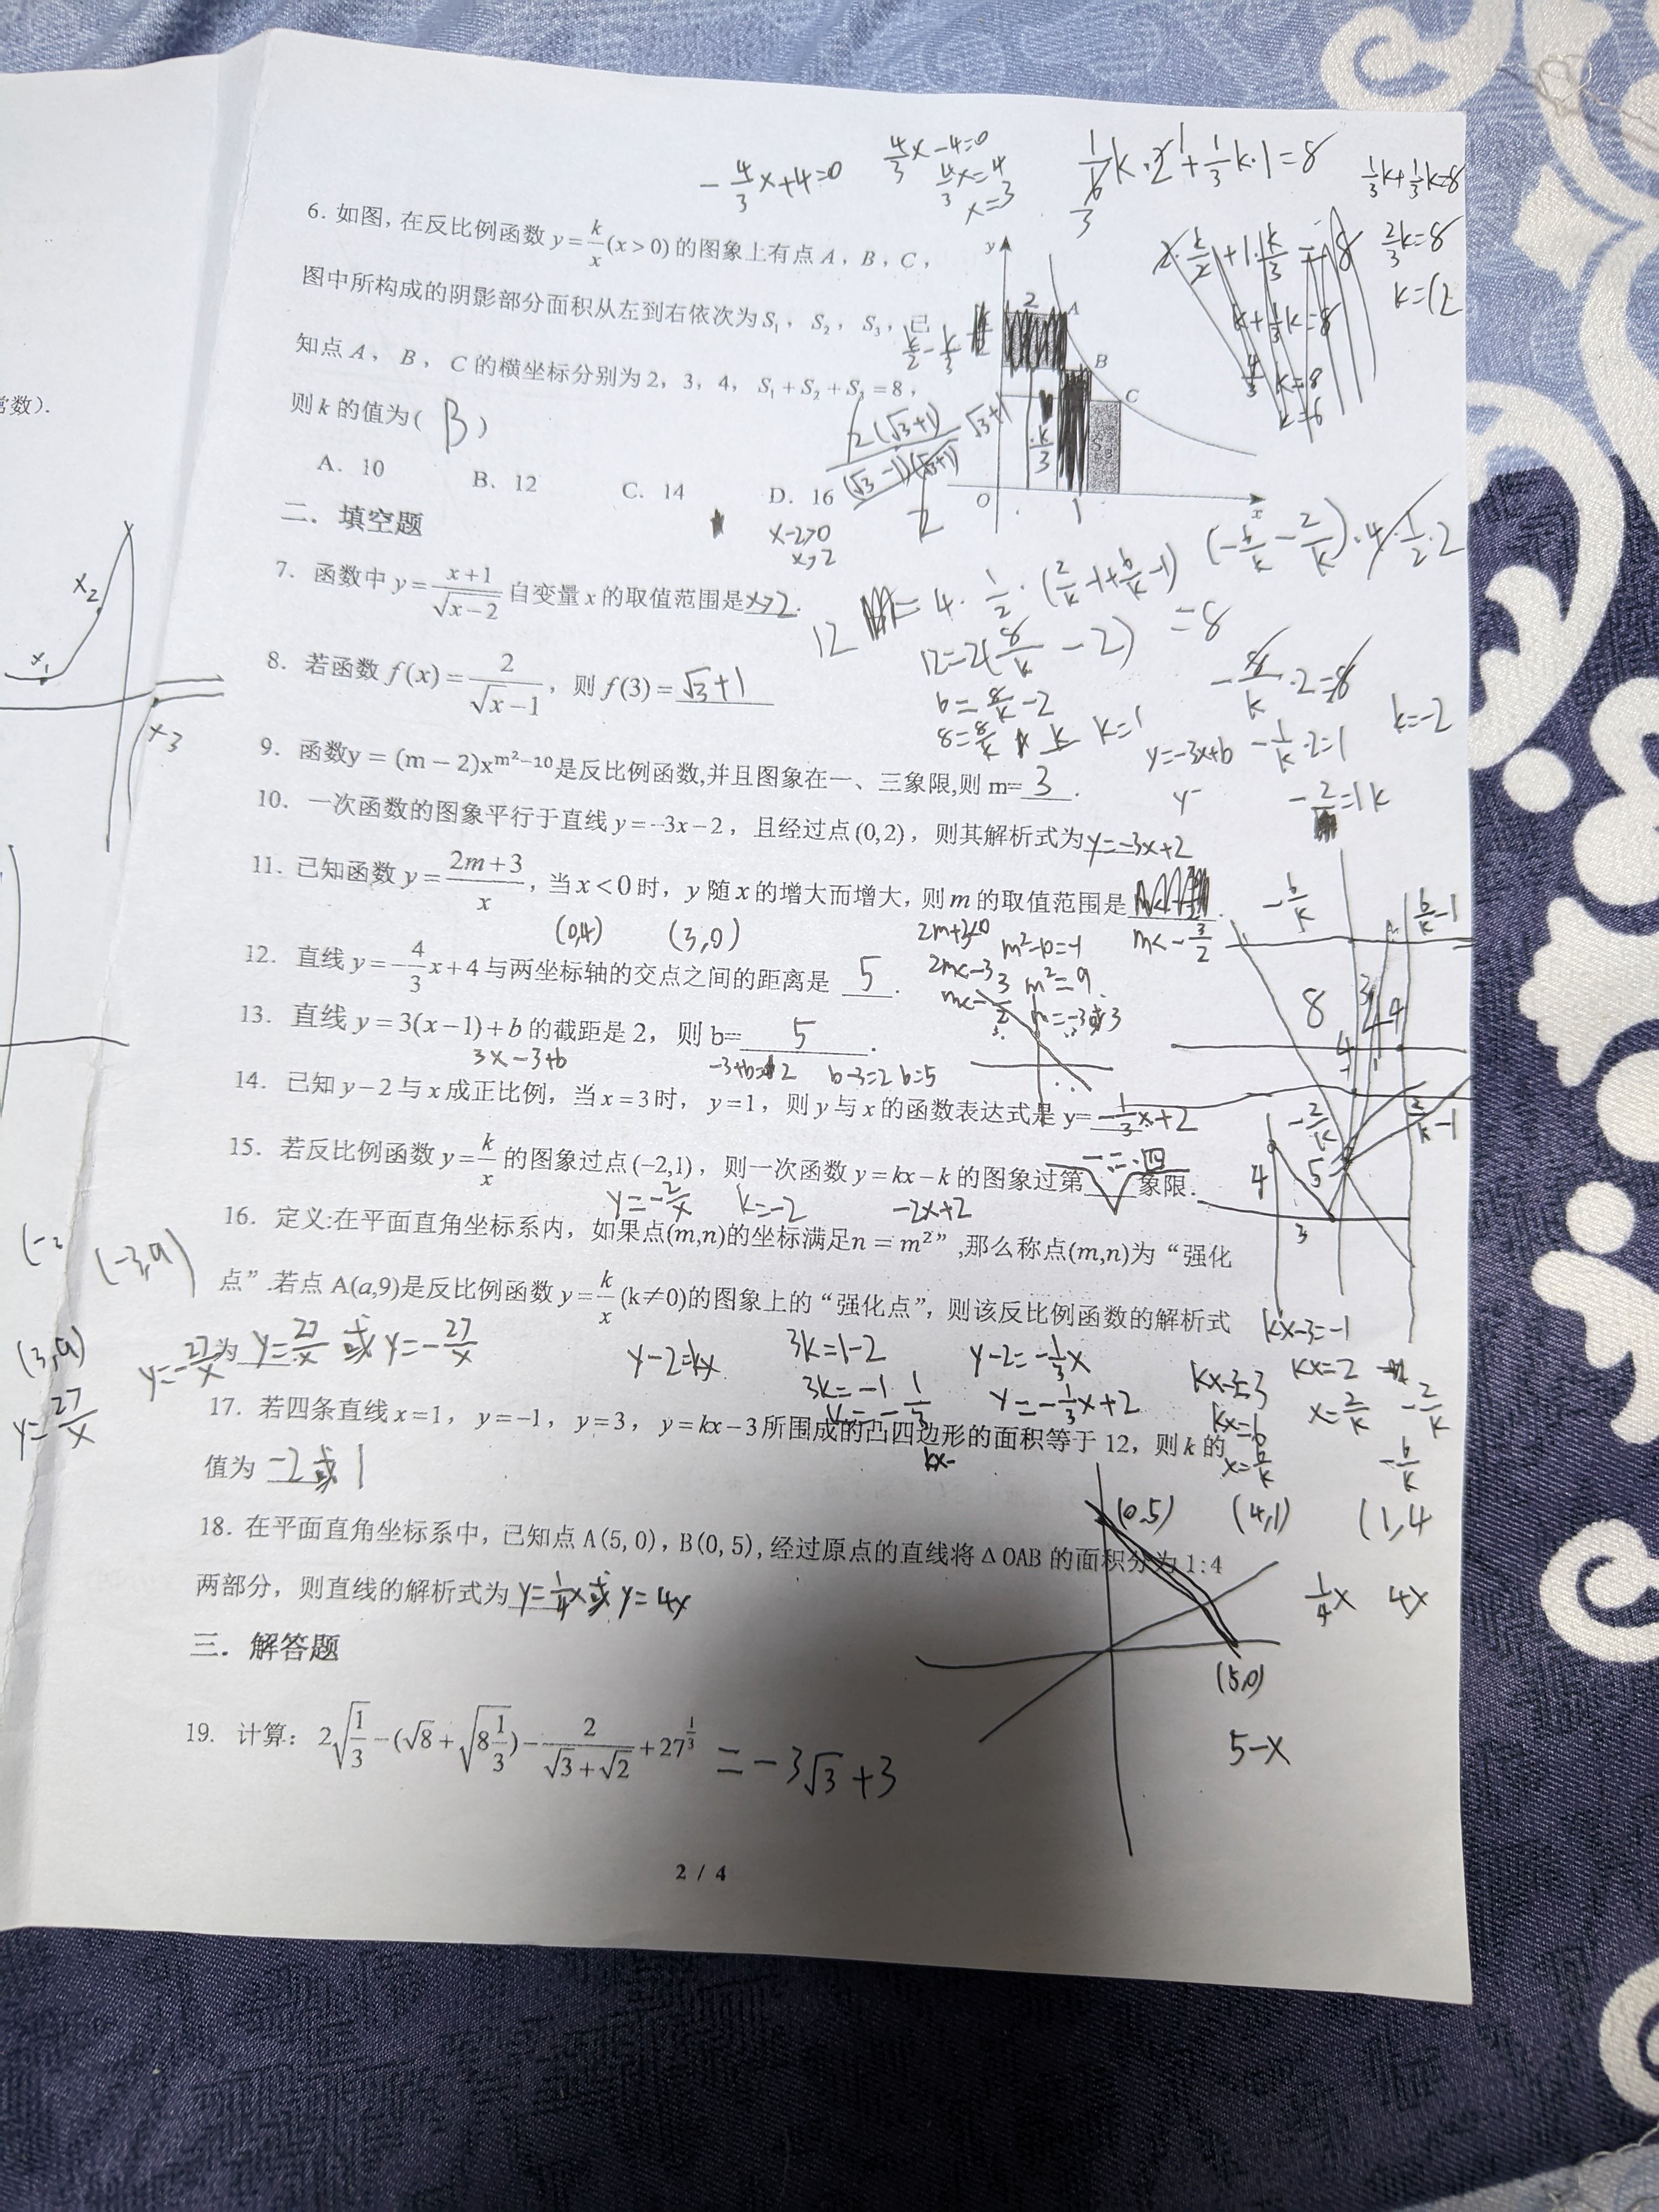 -4/3x+4=0
4/3x-4=0
4/3x=4
x=3
1/6k·2+1/3k·1=8
1/3k+1/3k=8
2/3k=8
k=12
6. 如图, 在反比例函数 y=k/x(x>0) 的图象上有点 A, B, C,
图中所构成的阴影部分面积从左到右依次为 S₁, S₂, S₃, 已
知点 A, B, C 的横坐标分别为 2, 3, 4, S₁+S₂+S₃=8,
则 k 的值为( B )
A. 10 B. 12 C. 14 D. 16
y
A
B
C
O
x
二. 填空题
x-2>0
x>2
7. 函数中 y=(x+1)/√(x-2) 自变量 x 的取值范围是 x>2.
8. 若函数 f(x)=2/(√x-1), 则 f(3)= √3+1
12=2(8/k-2)
6=8/k-2
8=8/k
k=1
k=-2
9. 函数y = (m-2)x^(m²-10)是反比例函数,并且图象在一、三象限,则 m= 3.
10. 一次函数的图象平行于直线 y=-3x-2, 且经过点(0,2), 则其解析式为 y=-3x+2
11. 已知函数 y=(2m+3)/x, 当 x<0 时, y 随 x 的增大而增大, 则 m 的取值范围是
m<-3/2
(0,4) (3,0)
2m+3<0
2m<-3
m²-10=-1
m²=9
m=-3或3
12. 直线 y=-4/3x+4 与两坐标轴的交点之间的距离是 5.
13. 直线 y=3(x-1)+b 的截距是 2, 则 b= 5.
3x-3+b
b-3=2 b=5
14. 已知 y-2 与 x 成正比例, 当 x=3 时, y=1, 则 y 与 x 的函数表达式是 y= -1/3x+2
15. 若反比例函数 y=k/x 的图象过点(-2,1), 则一次函数 y=kx-k 的图象过第 一、二、四 象限.
y=-2/x k=-2 -2x+2
16. 定义:在平面直角坐标系内, 如果点(m,n)的坐标满足n = m²”,那么称点(m,n)为“强化
点”.若点 A(a,9)是反比例函数 y=k/x(k≠0)的图象上的“强化点”, 则该反比例函数的解析式
为 y=27/x 或 y=-27/x
(-3,9)
(3,9)
y=27/x
y=-27/x
y-2=kx
3k=1-2
3k=-1
k=-1/3
y-2=-1/3x
y=-1/3x+2
kx-3=-1
kx=2
x=2/k
kx-3=3
kx=6
x=6/k
17. 若四条直线 x=1, y=-1, y=3, y=kx-3 所围成的凸四边形的面积等于 12, 则 k 的
值为 -2或1
18. 在平面直角坐标系中, 已知点 A(5, 0), B(0, 5), 经过原点的直线将 Δ OAB 的面积分为 1:4
两部分, 则直线的解析式为 y=1/4x或y=4x
(0,5) (4,1) (1,4
1/4x 4x
(5,0)
5-x
三. 解答题
19. 计算: 2√(1/3)-(√8+√(8 1/3))-2/(√3+√2)+27^(1/3) =-3√3+3
2 / 4
常数).
x₁
x₂
x₃